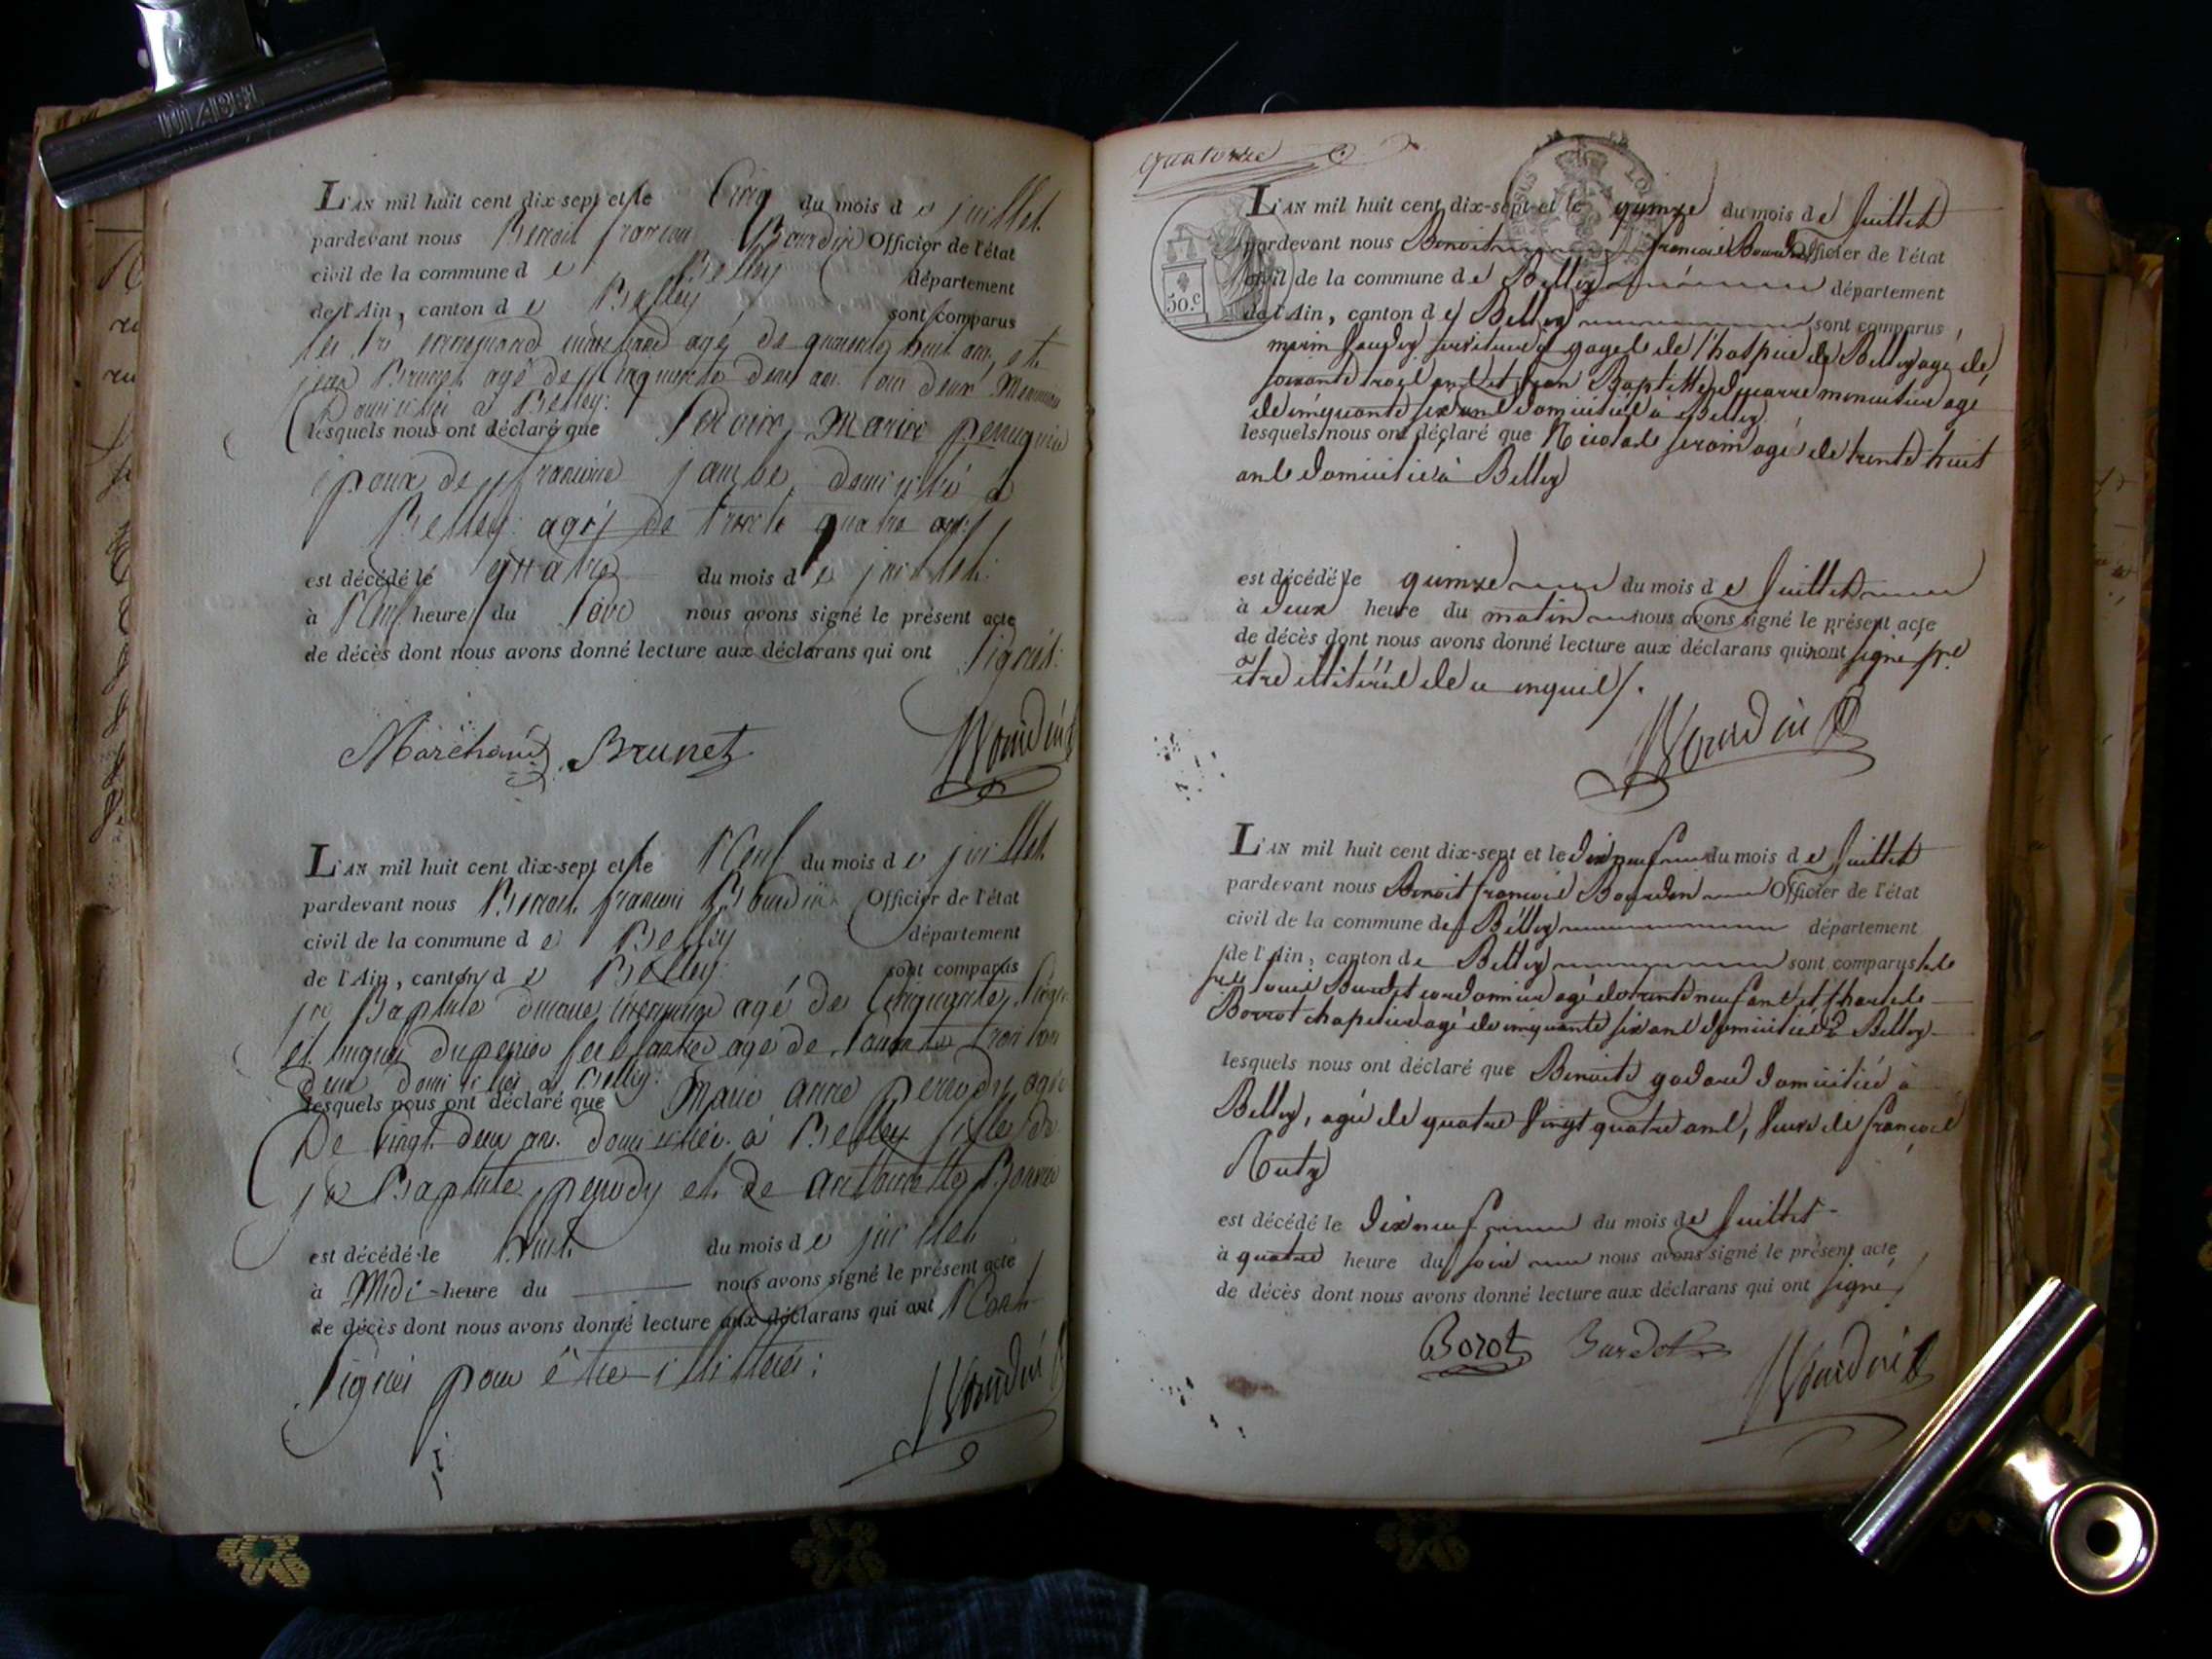 L'AN mil huit cent dix-sept et le Cinq du mois de juillet
pardevant nous Benoit françois Bourdin Officier de l'état
civil de la commune de Belley département
de l'Ain, canton de Belley sont comparus
agé de quarente huit ans, et
jean Brunet agé de cinquente deux ans tous deux
Domiciliés à Belley.
lesquels nous ont déclaré que Marie
epoux de françoise jambe domicilié à
Belley agé de trente quatre ans
est décédé le quatre du mois de juillet
à Neuf heures du soir nous avons signé le présent acte
de décès dont nous avons donné lecture aux déclarans qui ont signés.
Marchand Brunet Bourdin
L'AN mil huit cent dix-sept et le Neuf du mois de juillet
pardevant nous Benoit françois Bourdin Officier de l'état
civil de la commune de Belley département
de l'Ain, canton de Belley sont comparus
jn Baptiste agé de Cinquante
et agé de soixante trois tous
deux domiciliés à Belley.
lesquels nous ont déclaré que Marie anne perrody agée
De vingt deux ans domiciliée à Belley fille de
jn Baptiste perrody et de antoinette
est décédé le huit du mois de juillet
à Midi heure du nous avons signé le présent acte
de décès dont nous avons donné lecture aux déclarans qui ont Non
signés pour être illitterés.
Bourdin
quatorze
50.c
L'AN mil huit cent dix-sept et le quinze du mois de Juillet
pardevant nous Benoit françois Bourdin Officier de l'état
civil de la commune de Belley département
de l'Ain, canton de Belley sont comparus
serviteur à gages de l'hospice de Belley agé de
soixante trois ans et Jean Baptiste menuisier agé
de cinquante six ans domiciliés à Belley
lesquels nous ont déclaré que Nicolas agé de trente huit
ans domicilié à Belley
est décédé le quinze du mois de Juillet
à deux heure du matin nous avons signé le présent acte
de décès dont nous avons donné lecture aux déclarans qui n'ont signé pr
être illitérés de ce enquis.
Bourdin
L'AN mil huit cent dix-sept et le dix neuf du mois de Juillet
pardevant nous Benoit françois Bourdin Officier de l'état
civil de la commune de Belley département
de l'Ain, canton de Belley sont comparus les
srs louis Burdet cordonnier agé de trente neuf ans et Charles
Borrot chapelier agé de cinquante six ans domiciliés à Belley
lesquels nous ont déclaré que Benoite godard domiciliée à
Belley, agée de quatre vingt quatre ans, veuve de françois
est décédé le dix neuf du mois de Juillet
à quatre heure du soir nous avons signé le présent acte
de décès dont nous avons donné lecture aux déclarans qui ont signé
Borot Burdet Bourdin